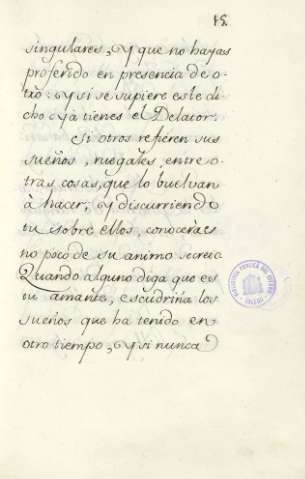 15.
singulares, y que no hayas
proferido en presencia de o-
tro: y si se supiere este di
cho ya tienes el Delator.
Si otros refieren sus
sueños, ruegales, entre o-
tras cosas, que lo buelvan
à hacer, y discurriendo
tu sobre ellos, conoceràs
no poco de su animo secreto
Quando alguno diga que es
tu amante, escudriña los
sueños que ha tenido en
otro tiempo, y si nunca
BIBLIOTECA PUBLICA